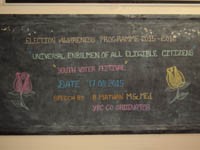 ELECTION AWARENESS PROGRAMME 2015-2016
UNIVERSAL ENROLMENT OF ALL ELIGIBLE CITIZENS
YOUTH VOTER FESTIVAL
DATE 17.09.2015
SPEECH BY B M.Sc M.Ed
YRC CO ORDINATOR